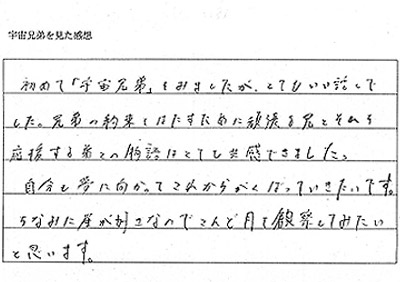 宇宙兄弟を見た感想
初めて「宇宙兄弟」をみましたが、とてもいい話しで
した。兄弟の約束をはたすために頑張る兄とそれを
応援する弟との物語はとても共感できました。
自分も夢に向かってこれからがんばっていきたいです。
ちなみに星が好きなのでこんど月を観察してみたい
と思います。